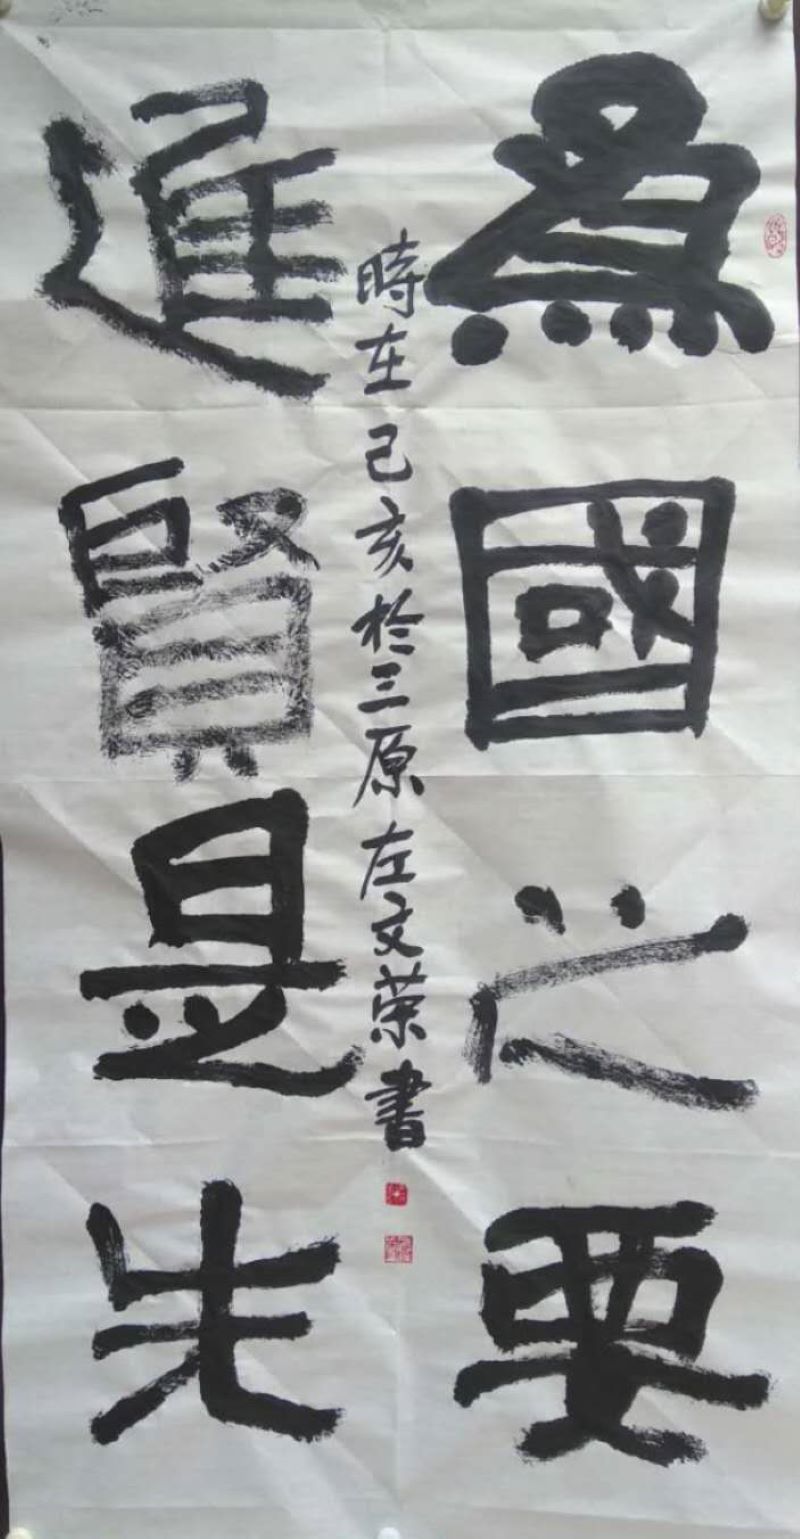 為國之要
進賢是先
時在己亥於三原左文荣書